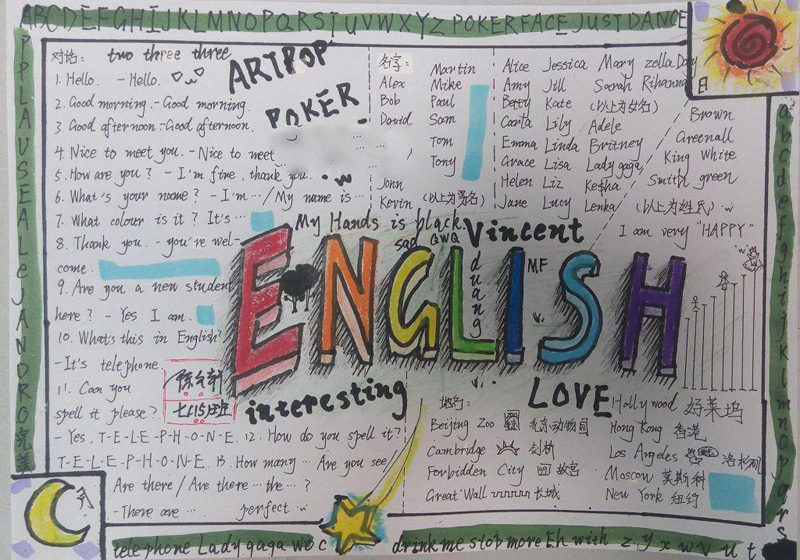 ABCDEFGHIJKLMNOPQRSTUVWXYZ POKERFACE JUSTDANCE
APPLAUSE ALEJANDRO
对话: two three three
1. Hello. - Hello.
2. Good morning. - Good morning.
3. Good afternoon - Good afternoon.
4. Nice to meet you. - Nice to meet
5. How are you? - I'm fire, thank you.
6. What's your name? - I'm ··· /My name is ···
7. What colour is it? It's ···
8. Thank you. - you're wel-
come.
9. Are you a new student
here? - Yes I am.
10. What's this in English?
- It's telephone
11. Can you
spell it please?
- Yes, T-E-L-E-P-H-O-N-E. 12. How do you spell it?
T-E-L-E-P-H-O-N-E. 13. How many ··· Are you see/
Are there / Are there ··· the ··· ?
- There are ··· perfect
ARTPOP
POKER
名字:
Alex
Bob
David
John
Kevin (以上为男名)
Martin
Mike
Paul
Sam
Tom
Tony
Alice Jessica Mary zella Day
Amy Jill Sarah Rihanna
Betty Kate (以上为女名)
Carla Lily Adele
Emma Linda Britney
Grace Lisa Lady gaga
Helen Liz Ke$ha
Jane Lucy Lenka (以上为姓氏)
日
Brown
Greenall
King White
Smith green
I am very "HAPPY"
My Hands is black
sad QWQ
Vincent
ENGLISH
duang
MF
interesting
LOVE
七(15)班
地名:
Beijing Zoo 北京动物园
Cambridge 剑桥
Forbidden City 故宫
Great Wall 长城
Hollywood 好莱坞
Hong Kong 香港
Los Angeles 洛杉矶
Moscow 莫斯科
New York 纽约
a b c d e f g h i j k l m n o p q r s
telephone Lady gaga wo c drink me stop more Eh with z y x w v u t